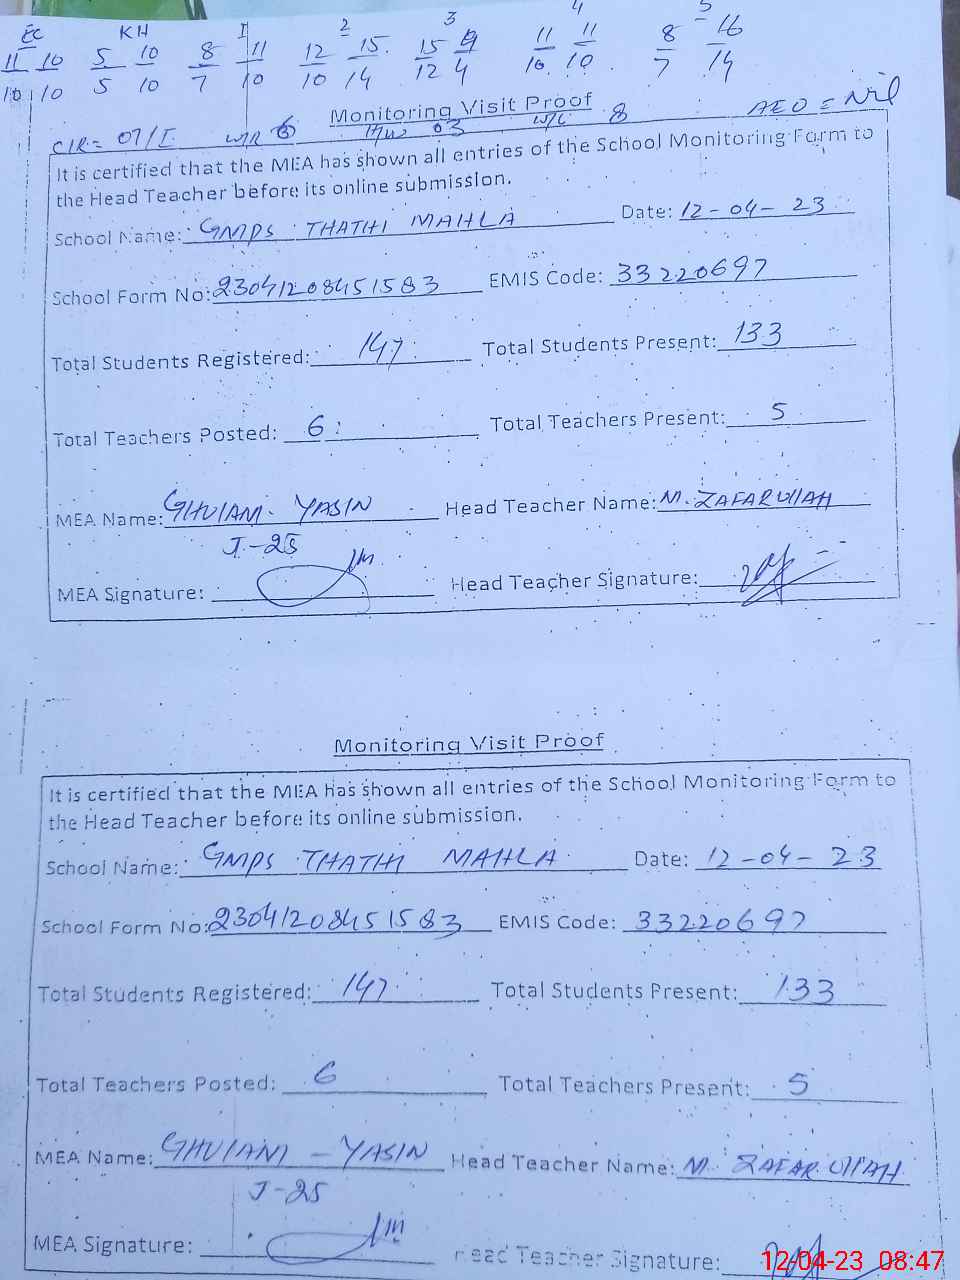 EC KH I 2 3 4 5
11 10 5 10 8 11 12 15 15 9 11 11 8 16
10 10 5 10 7 10 10 14 12 4 10 10 7 14
Monitoring Visit Proof AEO = Nil
CIR= 07/I W/R 6 03 W/C 8
It is certified that the MEA has shown all entries of the School Monitoring Form to
the Head Teacher before its online submission.
School Name: GMPS THATHI MAHLA Date: 12-04-23
School Form No: 23041208451583 EMIS Code: 33220697
Total Students Registered: 147 Total Students Present: 133
Total Teachers Posted: 6 Total Teachers Present: 5
MEA Name: GHULAM. YASIN Head Teacher Name: M. ZAFARUllAH
J-25
MEA Signature: Head Teacher Signature:
Monitoring Visit Proof
It is certified that the MEA has shown all entries of the School Monitoring Form to
the Head Teacher before its online submission.
School Name: GMPS THATHI MAHLA Date: 12-04-23
School Form No: 23041208451583 EMIS Code: 33220697
Total Students Registered: 147 Total Students Present: 133
Total Teachers Posted: 6 Total Teachers Present: 5
MEA Name: GHULAM - YASIN Head Teacher Name: M. ZAFAR UllAH
J-25
MEA Signature: Head Teacher Signature:
12-04-23 08:47